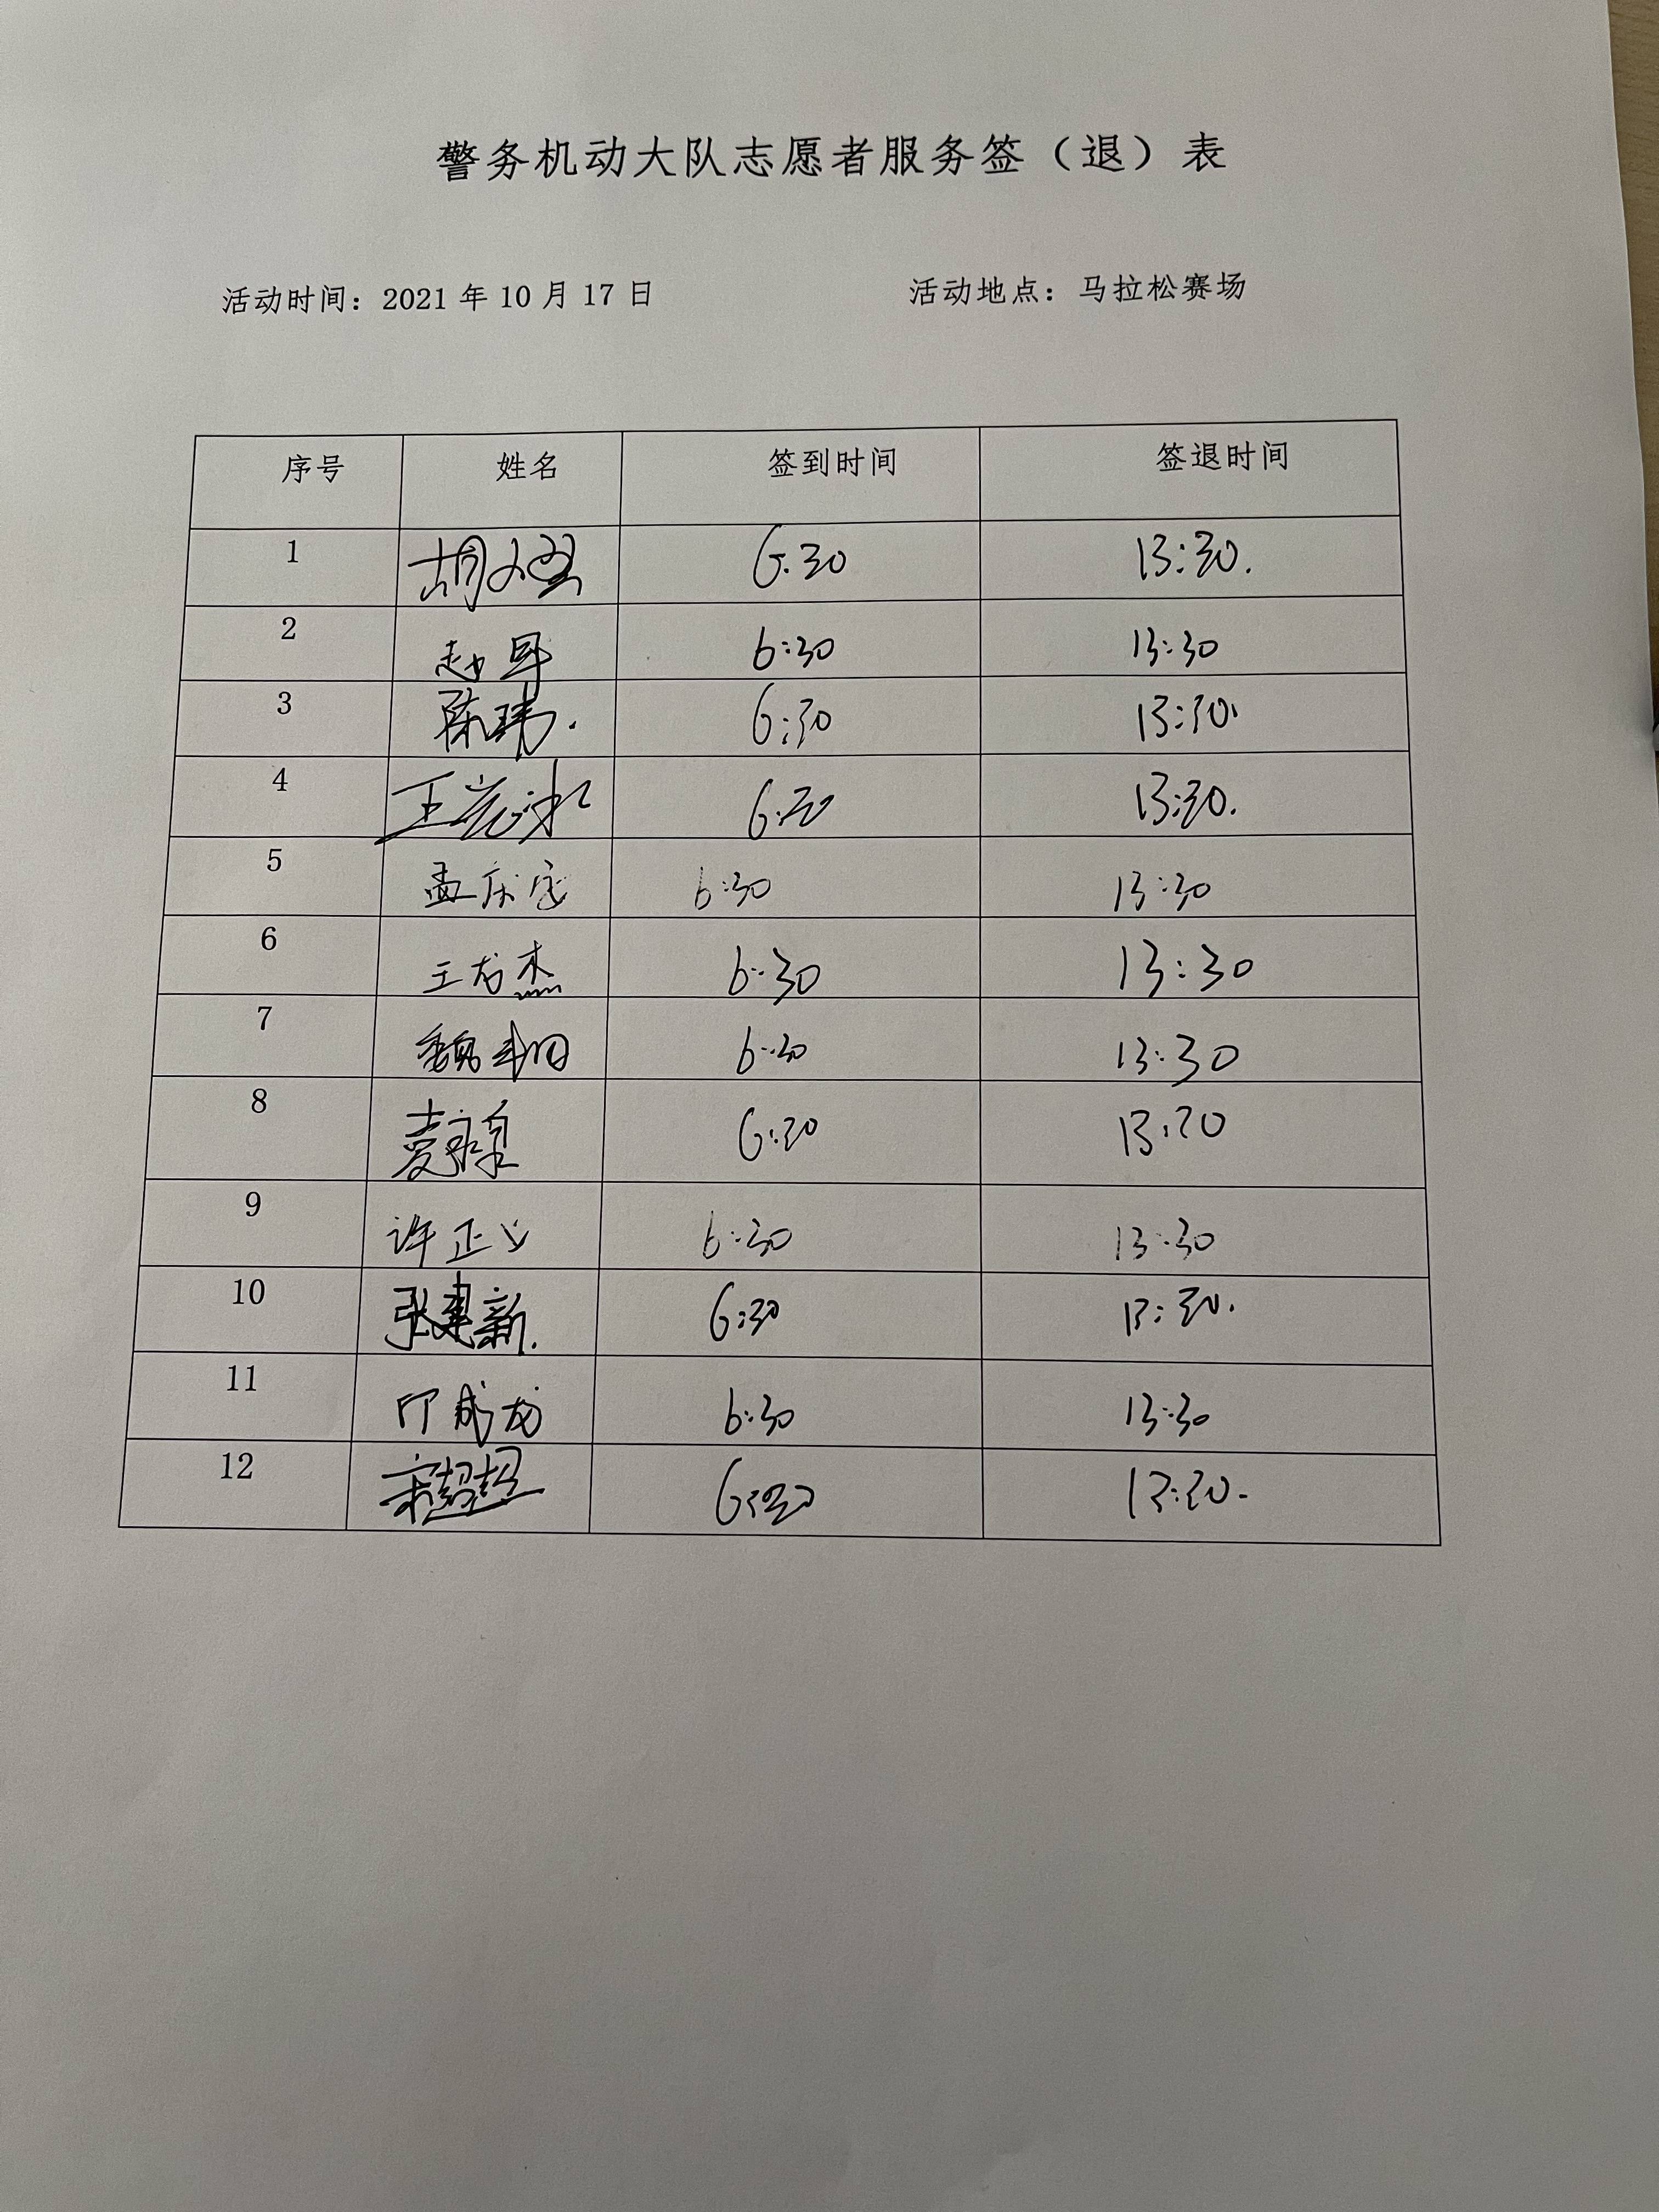 警务机动大队志愿者服务签（退）表
活动时间：2021 年 10 月 17 日 活动地点：马拉松赛场
序号 姓名 签到时间 签退时间
1 胡 6:30 13:30.
2 赵 6:30 13:30
3 陈玮. 6:30 13:30.
4 王 6:30 13:30.
5 孟庆宝 6:30 13:30
6 王龙杰 6:30 13:30
7 魏 6:30 13:30
8 6:30 13:30
9 许正义 6:30 13:30
10 张建新. 6:30 13:30.
11 印成龙 6:30 13:30
12 宋超超 6:30 13:30.